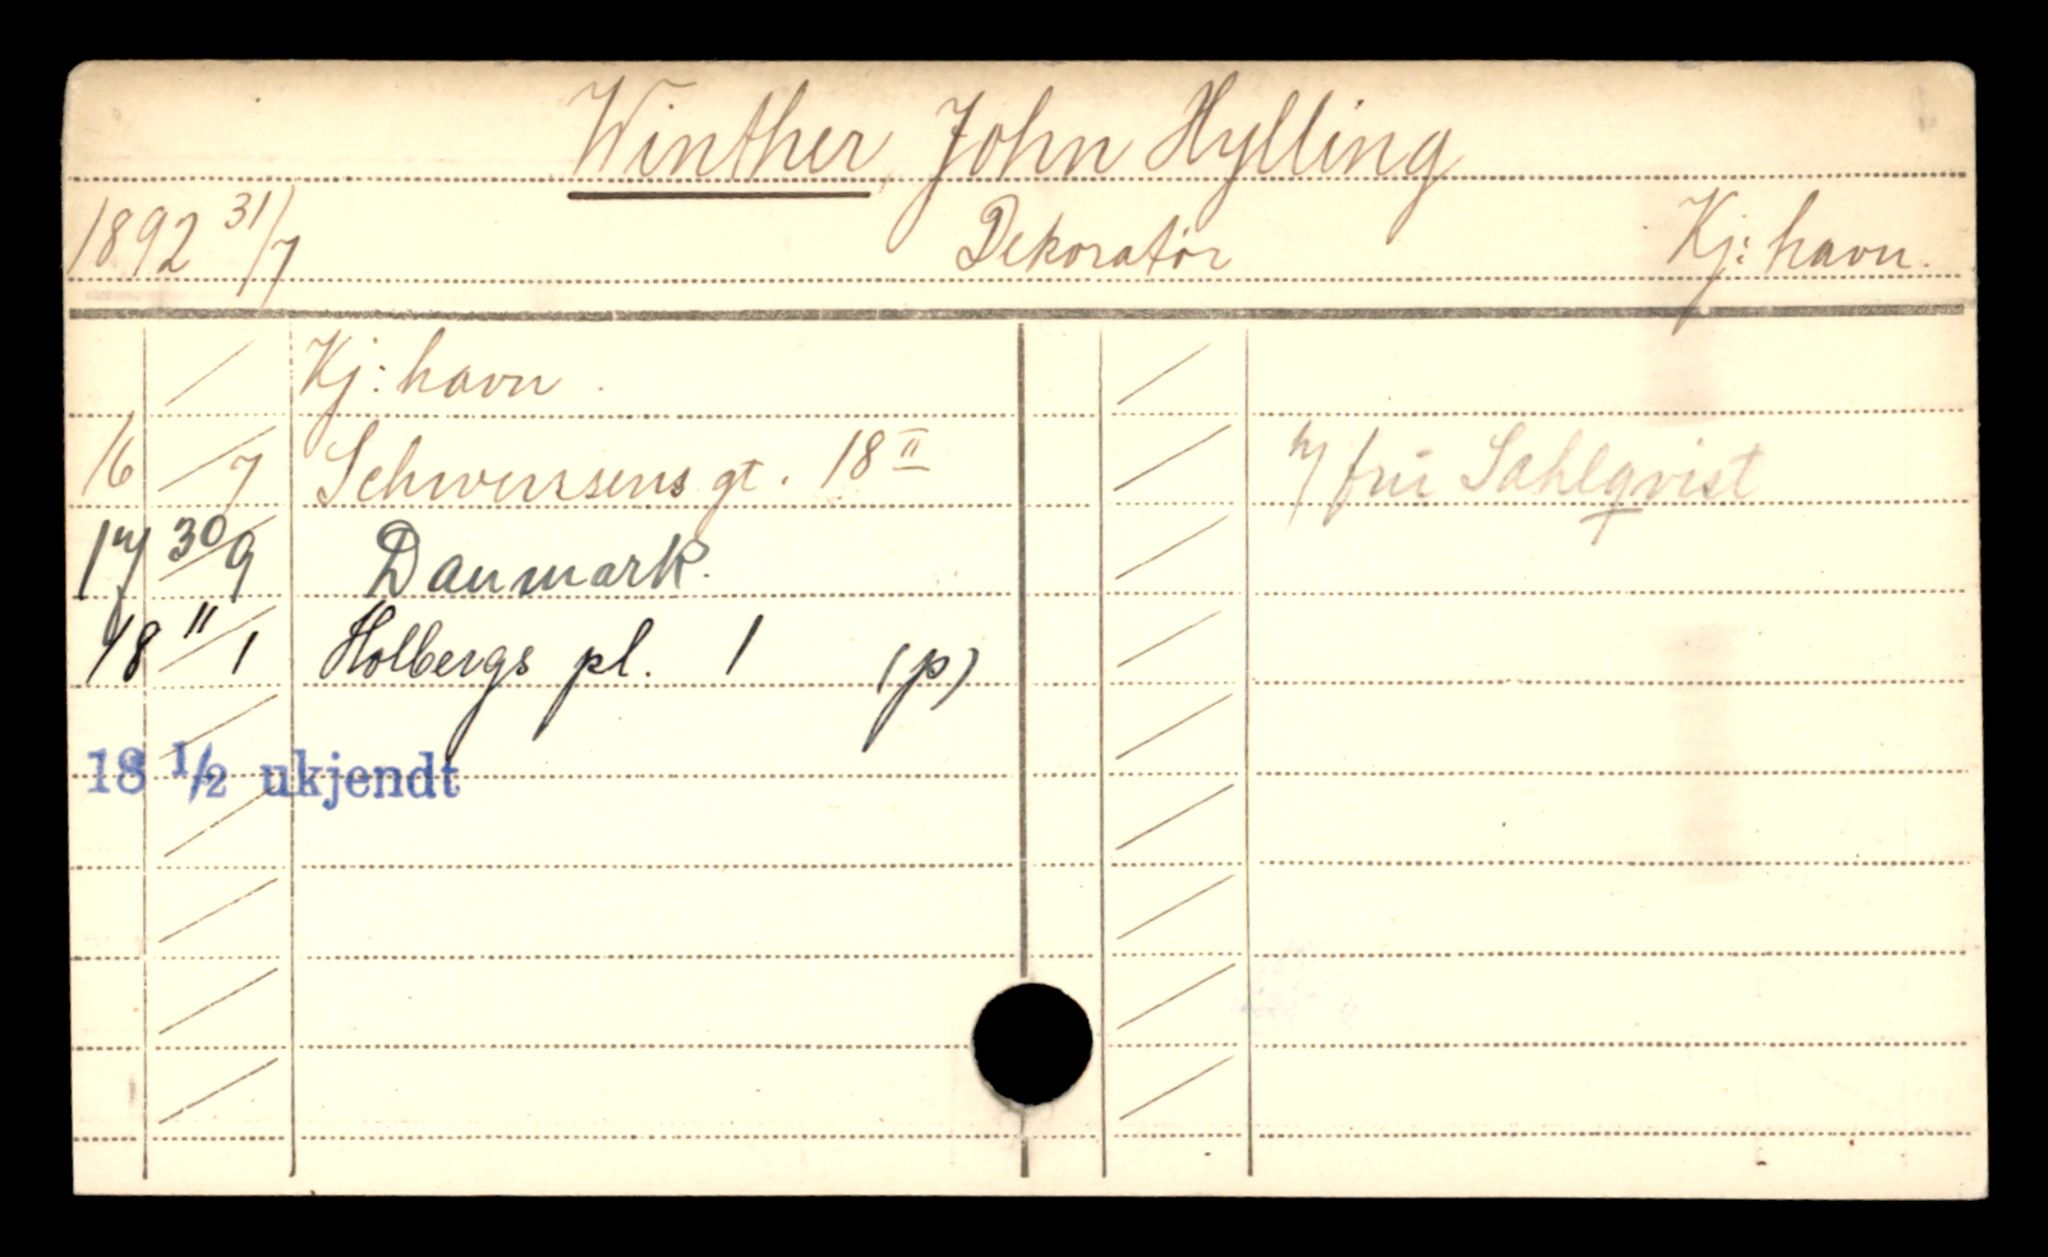 Winther, John Hylling
1892 31/7 Dekoratør Kj:havn.
Kj:havn.
16 /7 Schwenssens gt. 18 II h/ fru Sahlqvist
17 30/9 Danmark.
18 11/1 Holbergs pl. 1 (p)
18 1/2 ukjendt